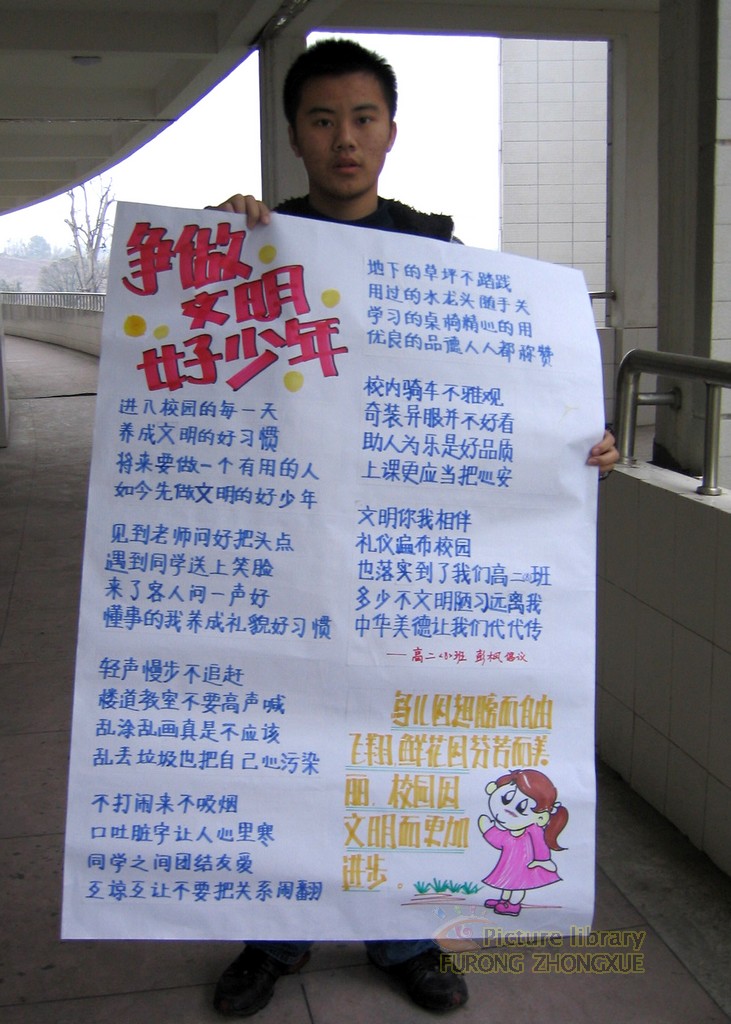 争做
文明
好少年
进八校园的每一天
养成文明的好习惯
将来要做一个有用的人
如今先做文明的好少年
见到老师问好把头点
遇到同学送上笑脸
来了客人问一声好
懂事的我养成礼貌好习惯
轻声慢步不追赶
楼道教室不要高声喊
乱涂乱画真是不应该
乱丢垃圾也把自己心污染
不打闹来不吸烟
口吐脏字让人心里寒
同学之间团结友爱
互谅互让不要把关系闹翻
地下的草坪不踏践
用过的水龙头随手关
学习的桌椅精心的用
优良的品德人人都称赞
校内骑车不雅观
奇装异服并不好看
助人为乐是好品质
上课更应当把心安
文明你我相伴
礼仪遍布校园
也落实到了我们高二班
多少不文明陋习远离我
中华美德让我们代代传
——高二班 彭枫倡议
鸟儿因翅膀而自由
飞翔,鲜花因芬芳而美
丽,校园因
文明而更加
进步。
Picture library
FURONG ZHONGXUE